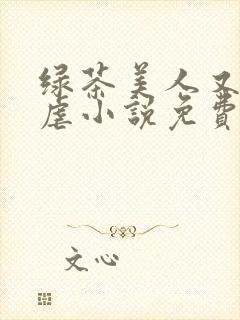 绿茶美人又
虐小說免費
文心